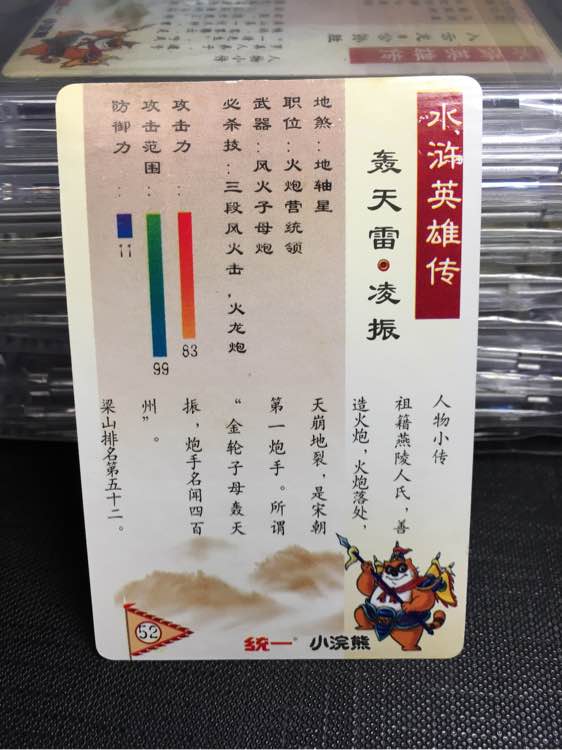 水浒英雄传
轰天雷·凌振
地煞：地轴星
职位：火炮营统领
武器：风火子母炮
必杀技：三段风火击，火龙炮
攻击力：
83
攻击范围：
99
防御力：
11
人物小传
祖籍燕陵人氏，善
造火炮，火炮落处，
天崩地裂，是宋朝
第一炮手。所谓
“金轮子母轰天
振，炮手名闻四百
州”。
梁山排名第五十二。
52
统一® 小浣熊